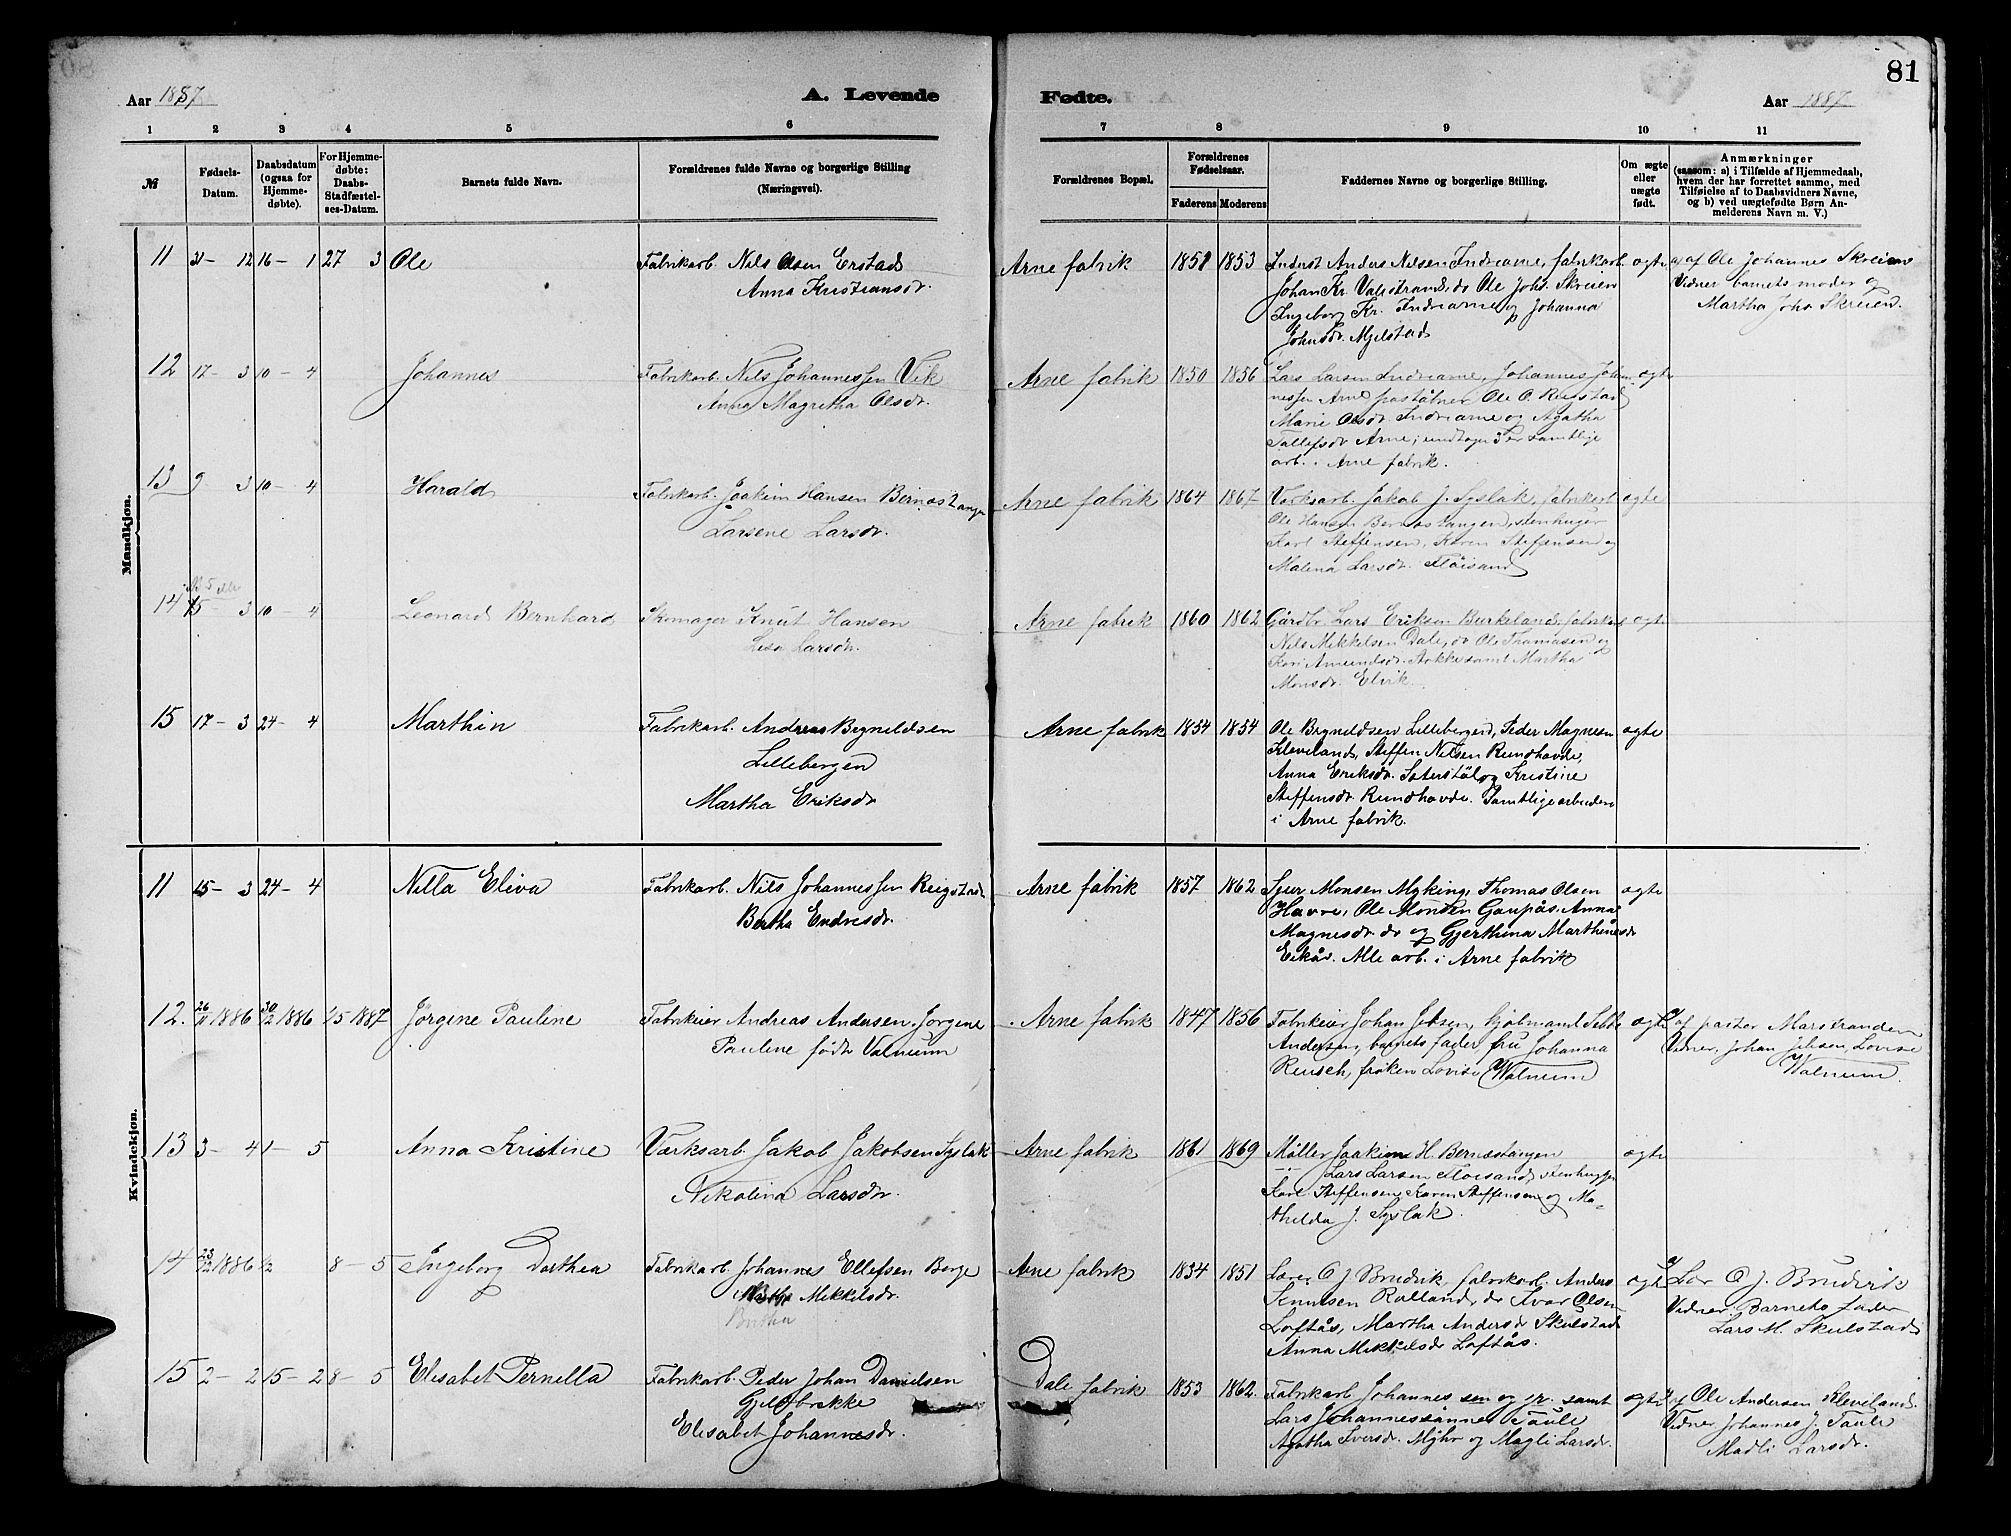 81
Aar 1887
A. Levende
Fødte.
Aar 1887
1 2 3 4 5 6 7 8 9 10 11
№
Fødsels-
Datum.
Daabsdatum
(ogsaa for
Hjemme-
døbte).
For Hjemme-
døbte:
Daabs-
Stadfæstel-
ses-Datum.
Barnets fulde Navn.
Forældrenes fulde Navne og borgerlige Stilling
(Næringsvei).
Forældrenes Bopæl.
Forældrenes
Fødselsaar.
Faderens Moderens
Faddernes Navne og borgerlige Stilling.
Om ægte
eller
uægte
født.
Anmærkninger
(saasom: a) i Tilfælde af Hjemmedaab,
hvem der har forrettet samme, med
Tilføielse af to Daabsvidners Navne,
og b) ved uægtefødte Børn An-
melderens Navn m. V.)
Mandkjøn.
11 31-12 16-1 27 3 Ole
Fabrikarb. Nils Olsen Erstad
Anna Kristiansdr.
Arne fabrik 1851 1853
Inderst Anders Nilsen Indrearne, fabrikarb.
Johan Kr. Valestrand, do Ole Johs. Skreien
Ingeborg Kr. Indrearne og Johanna
Johnsdr. Mjelstad
ægte
a) af Ole Johannes Skreien
Vidner barnets moder og
Martha Johs Skreien.
12 17-3 10-4 Johannes
Fabrikarb. Nils Johannessen Vik
Anna Magretha Olsdr.
Arne fabrik 1850 1856
Lars Larsen Indrearne, Johannes Johan-
nessen Arne, Ole O. Reigstad
Marie Olsdr. Indrearne og Agatha
Tollefsdr. Arne, samtlige
arb. i Arne fabrik.
ægte
13 9 3 10-4 Harald
Fabrikarb. Joakim Hansen Bernæstangen
Larsene Larsdr.
Arne fabrik 1864 1867
Værksarb. Jakob J. Syslak, fabrikarb
Ole Hansen Bernæstangen, stenhugger
Karl Steffensen, Karen Steffensen og
Malena Larsdr. Fløisand
ægte
14 15-3 10-4 Leonard Bernhard
Skomager Knut Hansen
Lisa Larsdr.
Arne fabrik 1860 1862
Gårdbr. Lars Eriksen Burkeland, fabrikarb
Nils Mikkelsen Dale, do Ole Thomasen og
Kari Amundsdr. samt Martha
Monsdr. Elvik.
ægte
15 17-3 24-4 Marthin
Fabrikarb. Andreas Brynildsen
Lillebergen
Martha Eriksdr
Arne fabrik 1854 1854
Ole Brynildsen Lillebergen, Peder Magnesen
Kleveland, Steffen Nilsen Rundhovde,
Anna Eriksdr. Säterstöl og Kristine
Steffensdr. Rundhovde. Samtlige arbeidere
i Arne fabrik.
ægte
Kvindekjøn.
11 15-3 24-4 Nilla Eliva
Fabrikarb. Nils Johannessen Reigstad
Bertha Endresdr.
Arne fabrik 1857 1862
Sjur Monsen Myking, Thomas Olsen
Havre, Ole Monsen Gaupås, Anna
Magnesdr. do og Gjerthina Marthinusdr
Eikås. Alle arb. i Arne fabrik
ægte
12. 26/11 1886 30/12 1886 15 1887 Jörgine Pauline
Fabrikeier Andreas Andersen. Jørgine
Pauline född Valneum
Arne fabrik 1847 1856
Fabrikeier Johan Jebsen, kjøbmand
Andersen, barnets fader, fru Johanna
Reusch, frøken Lovise Walneum
ægte
a) af pastor Marstrander
Vidner, Johan Jebsen, Lovise
Walneum
13 3-4 1-5 Anna Kristine
Værksarb. Jakob Jakobsen Syslak
Nikolina Larsdr.
Arne fabrik 1861 1869
Møller Joakim H. Bernæstangen
Lars Larsen Fløisand, stenhugger
Karl Steffensen, Karen Steffensen og Ma-
thelda J. Syslak.
ægte
14 23/12 1886 1/2 8-5 Ingeborg Dorthea
Fabrikarb. Johannes Ellefsen Borge
Mikkelsdr.
Britha
Arne fabrik 1834 1851
Lærer O J. Brudvik, fabrikarb. Anders
Knutsen Rolland, do Ivar Olsen
Loftås, Martha Andersdr Skulstad
Anna Mikkelsdr Loftås.
ægte
a) Lær O. J. Brudvik
Vidner: Barnets fader
Lars M. Skulstad
15 2-2 15-2 8-5 Elisabet Pernella
Fabrikarb. Peder Johan Danielsen
Gjelbrekke
Elisabet Johannesdr.
Dale fabrik 1853 1862
Fabrikarb Johannes sen og jr. samt
Lars Johannessönner Taule
Agatha Iversdr. Myhr og Magli Larsdr.
ægte
a) af Ole Andersen Kleveland.
Vidner Johannes J. Taule
Madli Larsdr.